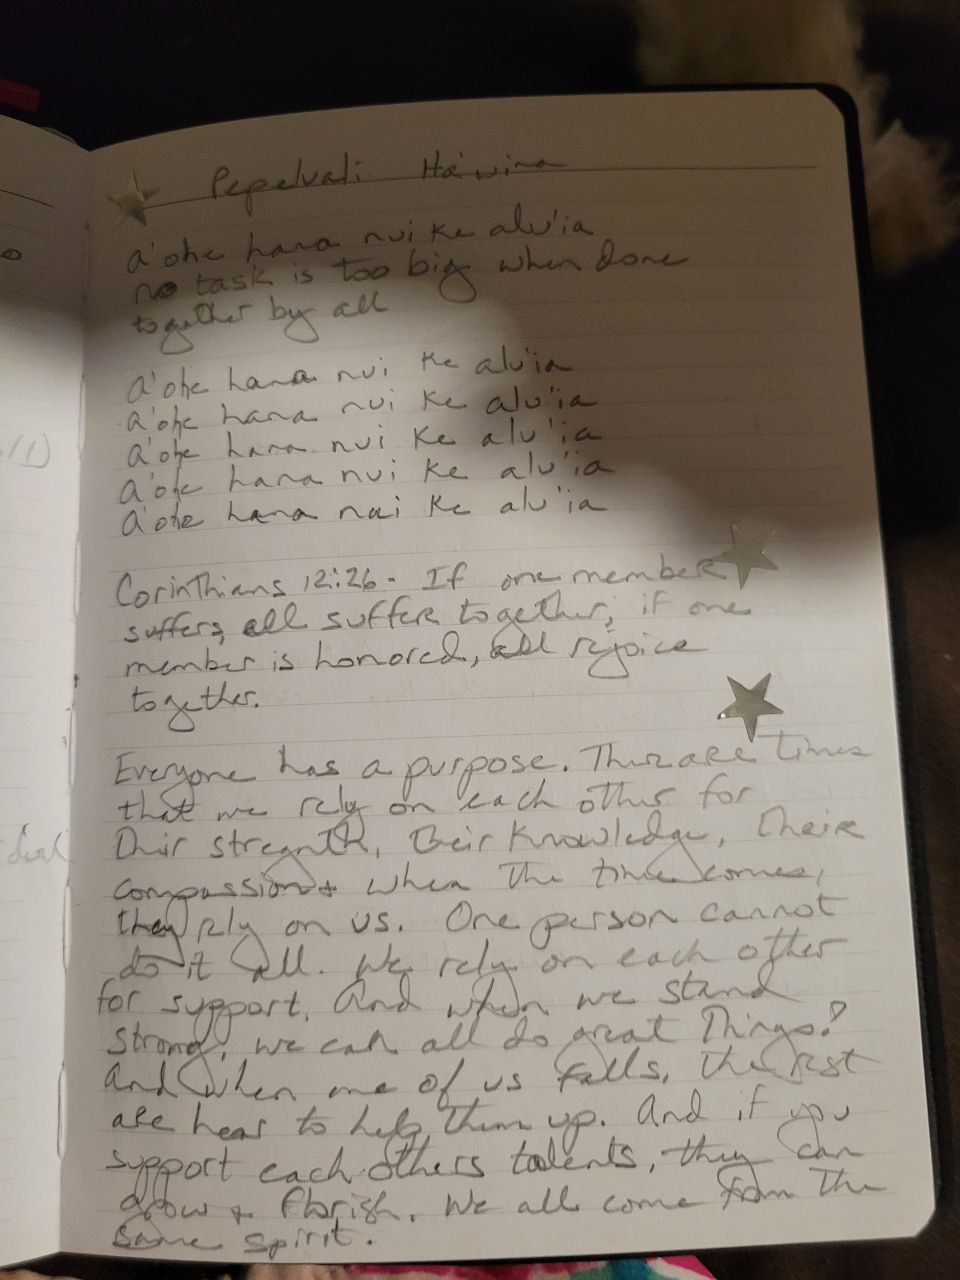 Pepeluali Ha'wina
a'ohe hana nui ke alu'ia
no task is too big when done
together by all
a'ohe hana nui ke alu'ia
a'ohe hana nui ke alu'ia
a'ohe hana nui ke alu'ia
a'ohe hana nui ke alu'ia
a'ohe hana nui ke alu'ia
Corinthians 12:26 - If one member
suffers, all suffer together, if one
member is honored, all rejoice
together.
Everyone has a purpose. There are times
that we rely on each other for
their strength, their knowledge, their
compassion + when the time comes,
they rely on us. One person cannot
do it all. We rely on each other
for support. And when we stand
strong, we can all do great things!
And when one of us falls, the rest
are hear to help them up. And if you
support each others talents, they can
grow + florish. We all come from the
same spirit.